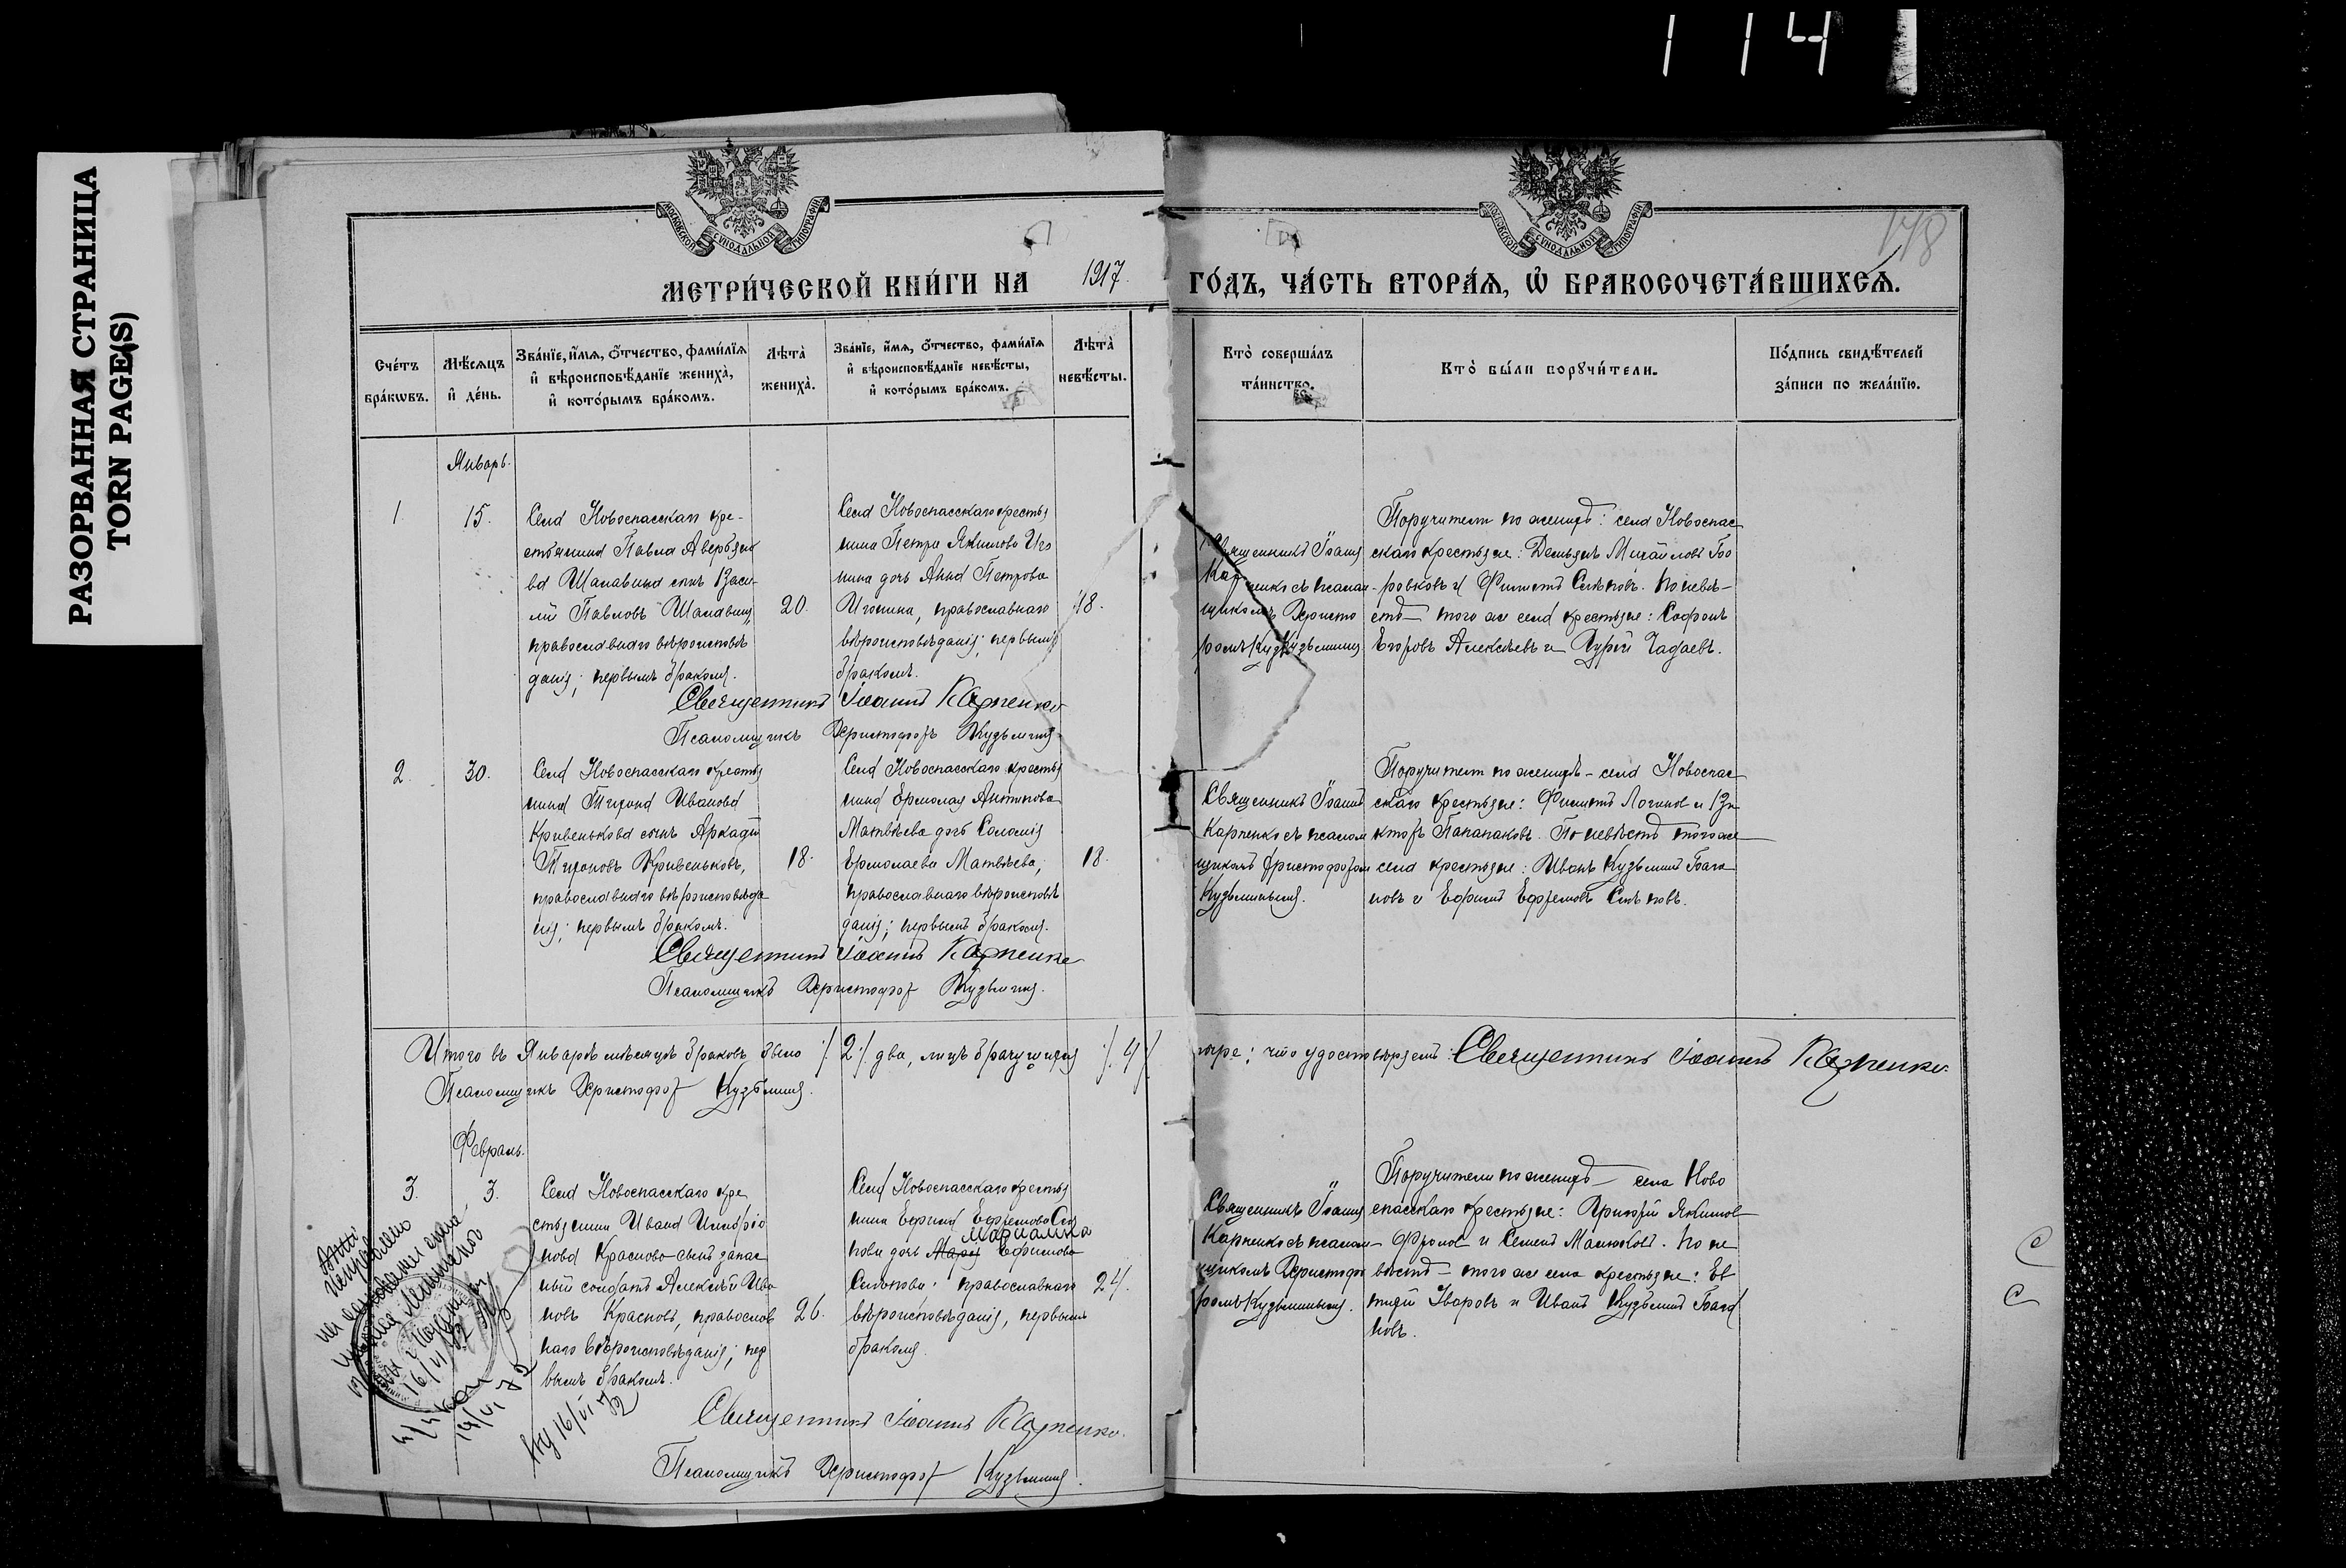 114
РАЗОРВАННАЯ СТРАНИЦА
TORN PAGE(S)
МОСКОВСКОЙ СѴНОДАЛЬНОЙ ТИПОГРАФІИ
МОСКОВСКОЙ СѴНОДАЛЬНОЙ ТИПОГРАФІИ
178
МЕТРИ́ЧЕСКОЙ КНИ́ГИ НА 1917 ГО́ДЪ, ЧА́СТЬ ВТОРА́Я, Ѡ БРАКОСОЧЕТА́ВШИХСЯ.
Сче́тъ
бра́кѡвъ.
Мѣ́сяцъ
и де́нь.
Зва́нїе, и́мя, о́тчество, фами́лїя
и вѣроисповѣ́данїе жениха̀,
и кото́рымъ бра́комъ.
Лѣта̀
жениха̀.
Зва́нїе, и́мя, о́тчество, фами́лїя
и вѣроисповѣ́данїе невѣ́сты,
и кото́рымъ бра́комъ.
Лѣта̀
невѣ́сты.
Кто̀ соверша́лъ
та́инство.
Кто̀ бы́ли порꙋчи́тели.
По́дпись свидѣ́телей
за́писи по жела́нїю.
Январь.
1.
15.
Села Новоспасскаго кре-
стьянина Павла Аверьяно
ва Шалавина сынъ Васи-
лій Павловъ Шалавинъ,
православнаго вѣроисповѣ
данія; первымъ бракомъ.
20.
Села Новоспасскаго крестья
нина Петра Якимова Иго
нина дочь Анна Петрова
Игонина, православнаго
вѣроисповѣданія; первымъ
бракомъ.
18.
Священникъ Іоаннъ
Кар нко съ псалом-
щикомъ Христо
ромъ Кузьминымъ
Поручители по женихѣ: села Новоспас
скаго крестьяне: Демьянъ Михайловъ Бо
ровковъ и Филиппъ Слѣповъ. По невѣ-
стѣ – того же села крестьяне: Софронъ
Егоровъ Алексѣевъ и Гурій Чадаевъ.
Священникъ Іоаннъ Карпенко
Псаломщикъ Христофоръ Кузьминъ
2.
30.
Села Новоспасскаго крестья
нина Тихона Иванова
Кривенькова сынъ Аркадій
Тихоновъ Кривеньковъ,
православнаго вѣроисповѣда
нія; первымъ бракомъ.
18.
Села Новоспасскаго крестья
нина Ермолая Антипова
Матвѣева дочь Соломія
Ермолаева Матвѣева,
православнаго вѣроисповѣ
данія; первымъ бракомъ.
18.
Священникъ Іоаннъ
Карпенко съ псалом
щикомъ Христофоромъ
Кузьминымъ.
Поручители по женихѣ – села Новоспас
скаго крестьяне: Филиппъ Логинов и Ви
кторъ Папапаковъ. По невѣстѣ того же
села крестьяне: Иванъ Кузьминъ Бага
новъ и Ефимъ Ефремовъ Слѣповъ.
Священникъ Іоаннъ Карпенко
Псаломщикъ Христофор Кузьминъ.
Итого въ Январѣ мѣсяцѣ браковъ было /.2./. два, лицъ брачущихся /.4/. тыре; что удостовѣряемъ: Священникъ Іоаннъ Карпенко.
Псаломщикъ Христофор Кузьминъ.
Февраль.
3.
3.
Села Новоспасскаго кре
стьянина Ивана Иларіо
нова Краснова сынъ запас
ный солдатъ Алексѣй Ива
новъ Красновъ, православ
наго вѣроисповѣданія; пер
вымъ бракомъ.
26.
Села Новоспасскаго крестья
нина Ефима Ефремова Слѣ
Марианна
пова дочь Марья Ефимова
Слѣпова; православнаго
вѣроисповѣданія, первымъ
бракомъ.
24.
Священникъ Іоаннъ
Карпенко съ псалом-
щикомъ Христофо
ромъ Кузьминымъ.
Поручители по женихѣ – села Ново
спасскаго крестьяне: Григорій Якимов
Фролов и Семенъ Малюковъ. По не
вѣстѣ – того же села крестьяне: Ев
тихій Уваровъ и Иванъ Кузьминъ Бага
новъ.
исправлено
на основании
16/VI 72
14/VI 72
16/VI 72
Священникъ Іоаннъ Карпенко.
Псаломщикъ Христофор Кузьминъ.